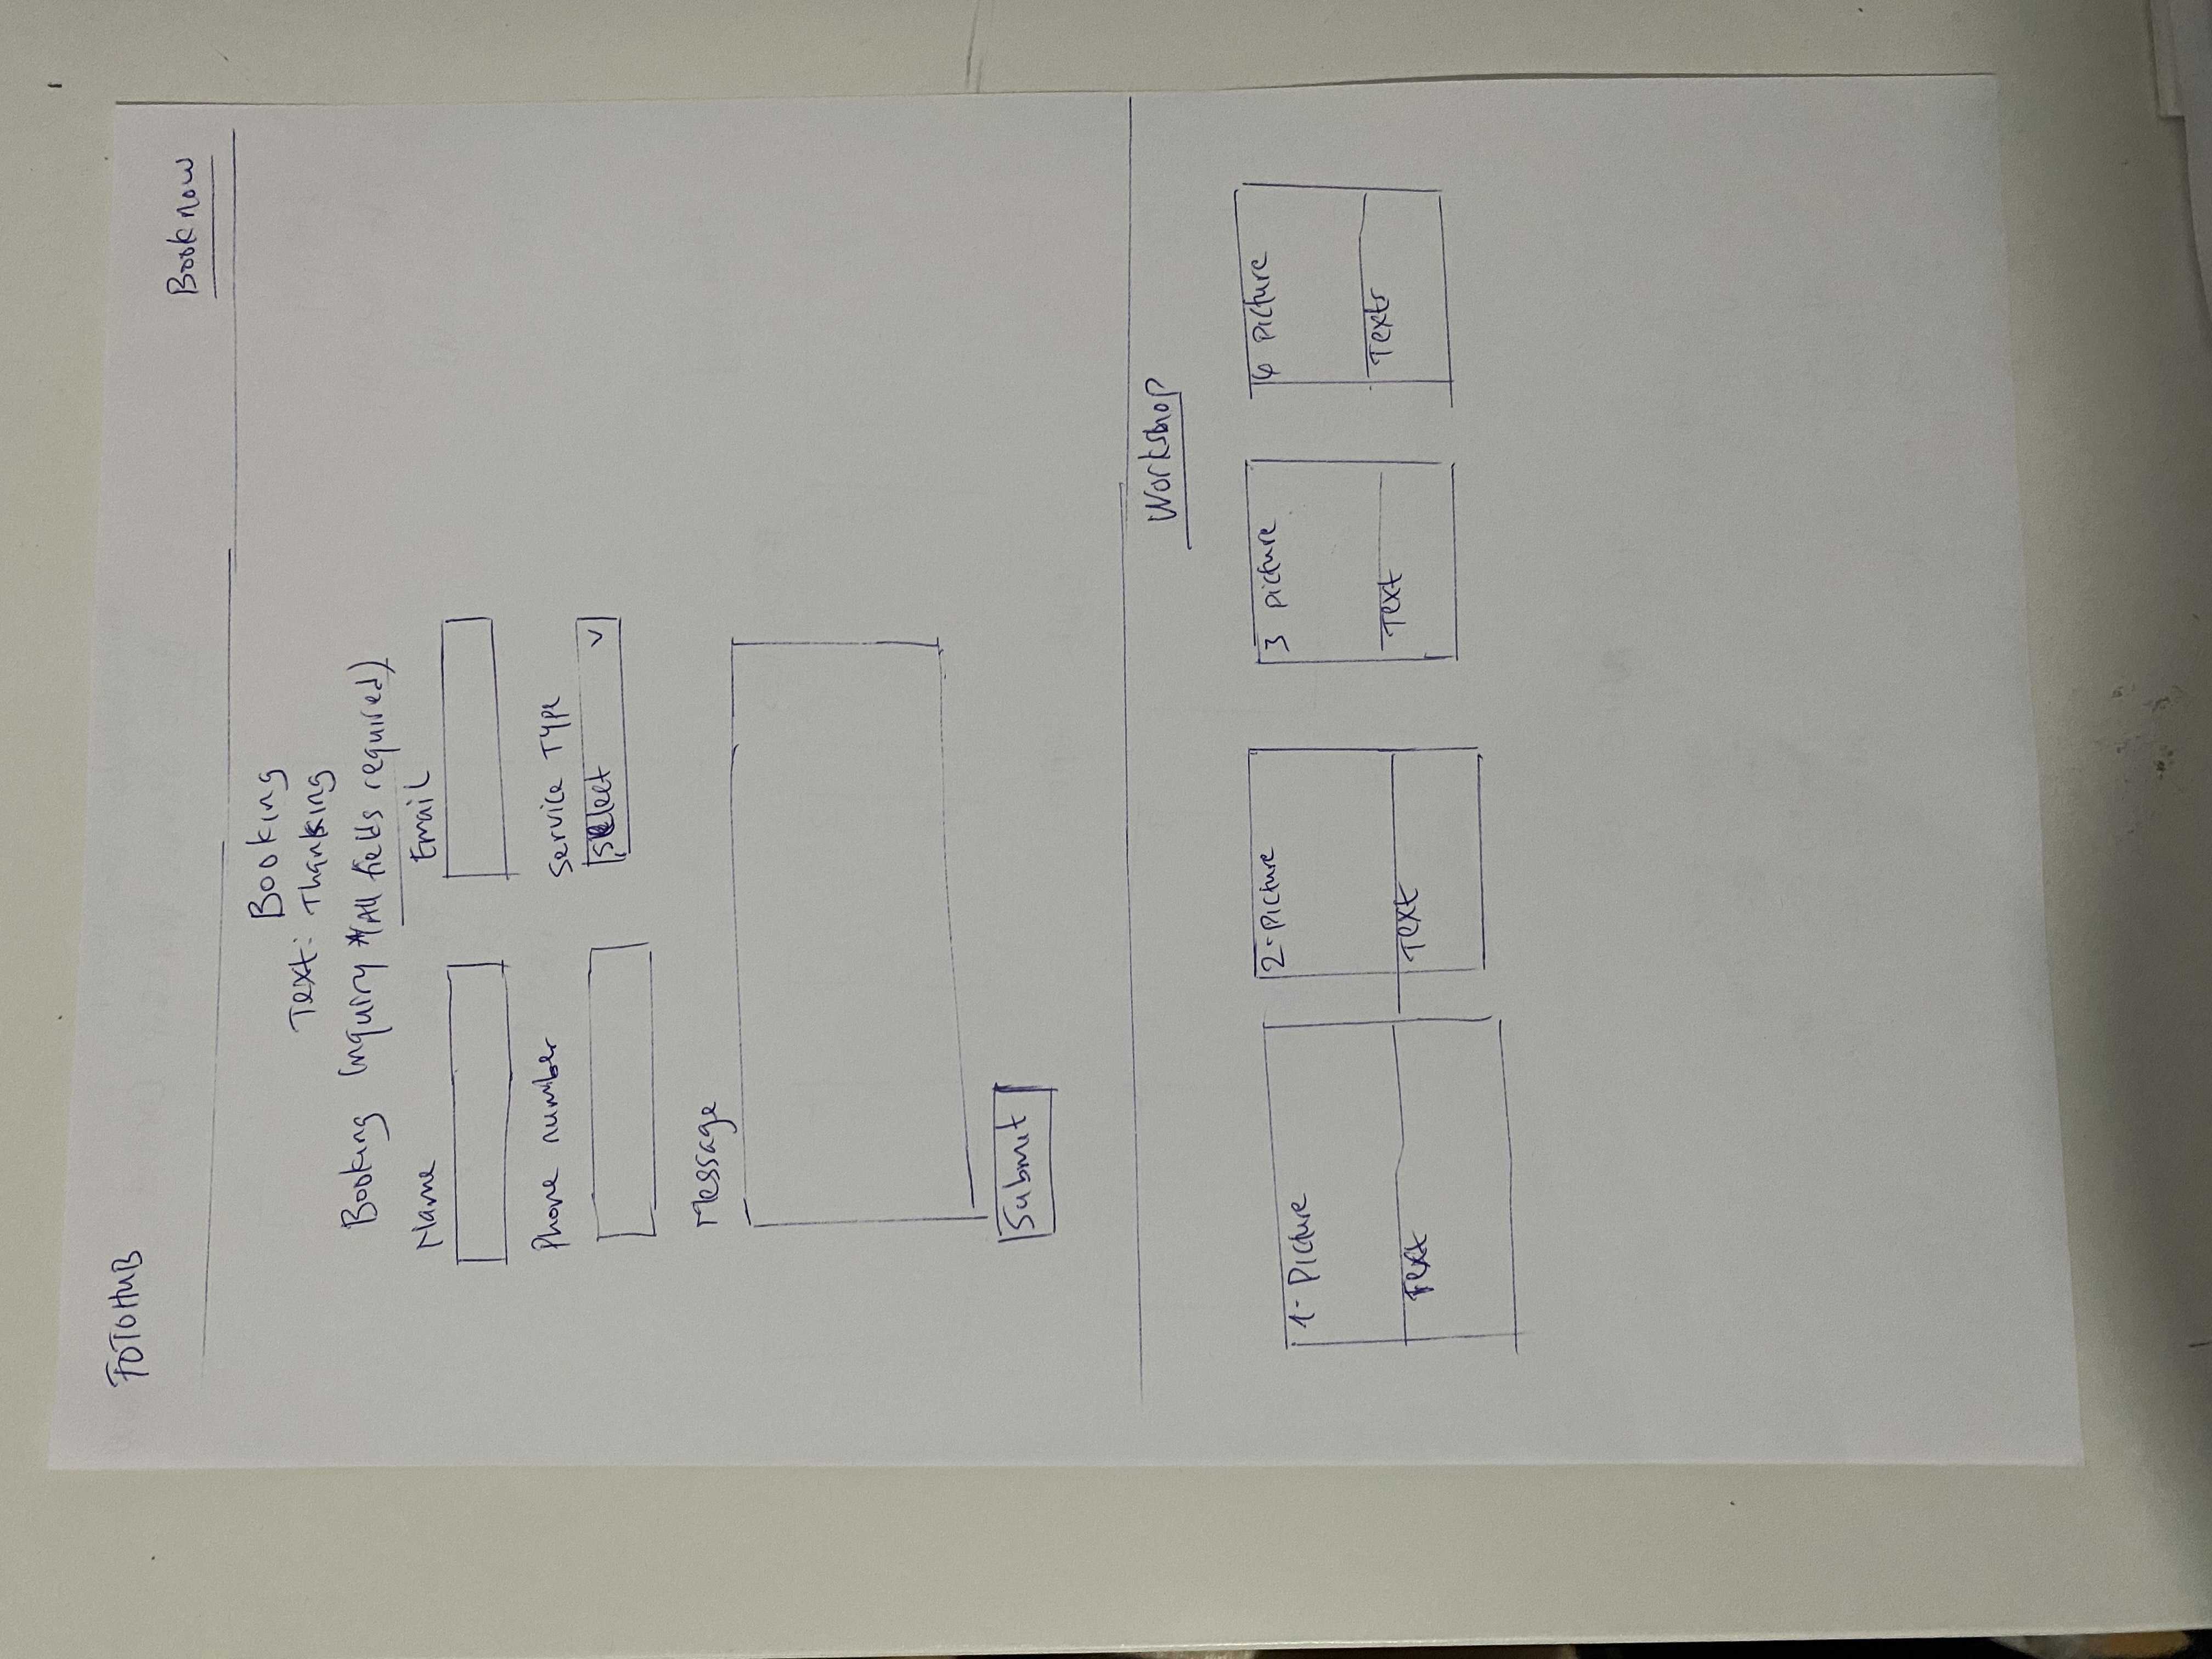 FOTOHUB
Book now
Booking
Text: Thanking
Booking Inquiry *(All fields required)
Name
Email
Phone number
Service Type
Select
Message
Submit
Workshop
1- Picture
2- Picture
3 picture
4 picture
Text
Text
Text
Texts